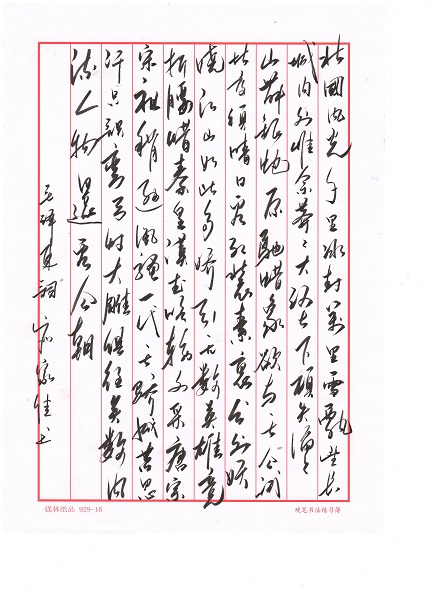 北國風光千里冰封萬里雪飄望長
城内外惟余莽々大河上下頓失滔々
山舞銀蛇原馳蜡象欲与天公试
比高須晴日看红装素裹分外妖
娆江山如此多娇引无数英雄竞
折腰惜秦皇漢武略输文采唐宗
宋祖稍逊風骚一代天骄成吉思
汗只識弯弓射大雕俱往矣数風
流人物還看今朝
毛泽東詞 家佳书
纸品 929-16
硬笔书法练习薄